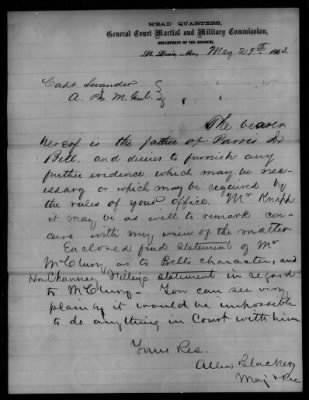 HEAD QUARTERS,
General Court Martial and Military Commission,
DEPARTMENT OF THE MISSOURI,
St. Louis, Mo., May 29th 1863.
Capt
A. P. M. Genl.
The bearer
hereof is the father of
Bell. and desires to furnish any
further evidence which may be nec-
essary or which may be required by
the rules of your office. Mr Knapp
it may be as well to remark con-
curs with my view of the matter
Enclosed find statement of Mr
McClurg as to Bells character, and
Hon statement in regard
to McClurg - You can see very
plainly it would be impossible
to do anything in Court with him
Yours Res.
Allen Blacker
Maj &